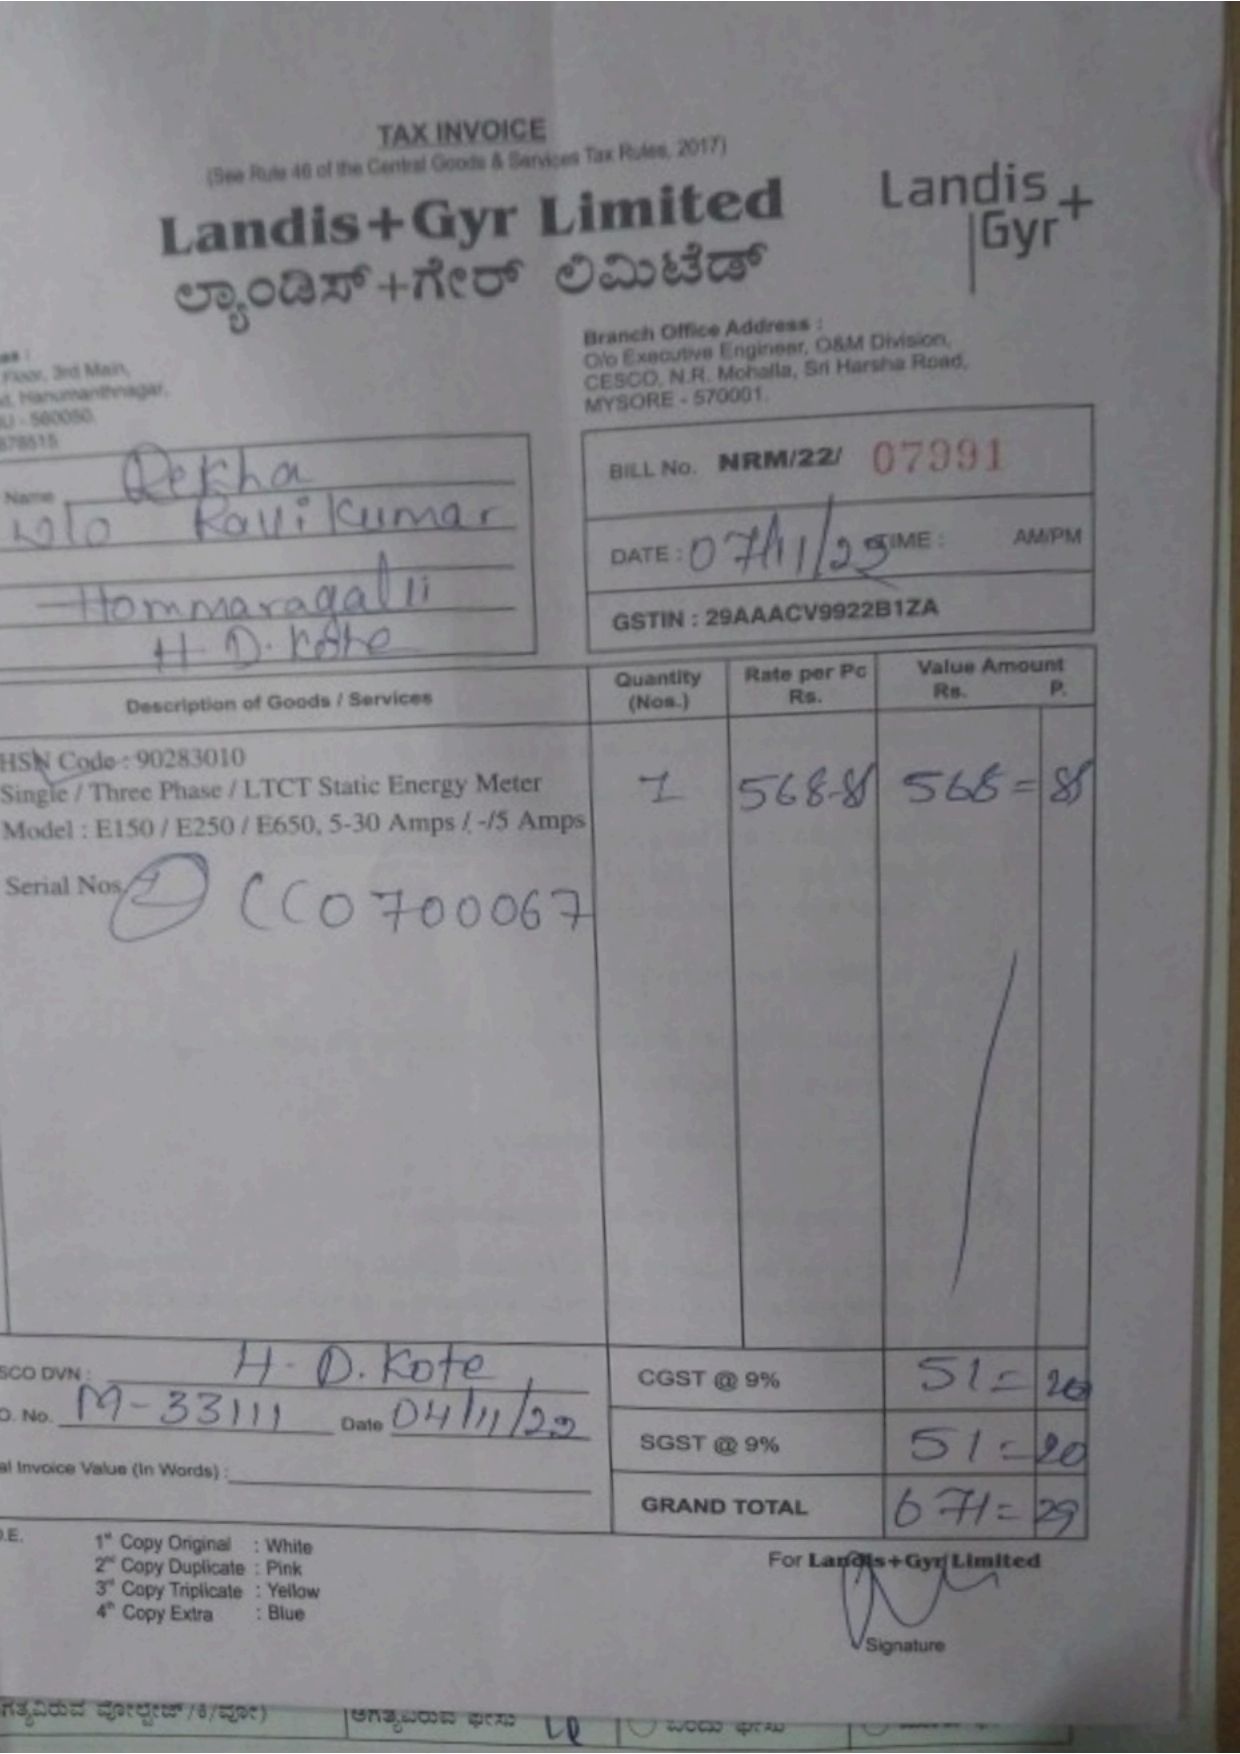 TAX INVOICE
(See Rule 46 of the Central Goods & Services Tax Rules, 2017)
Landis+Gyr Limited
ಲ್ಯಾಂಡಿಸ್+ಗೇರ್ ಲಿಮಿಟೆಡ್
Landis
Gyr+
Floor, 3rd Main,
Hanumanthnagar,
- 560050.
Branch Office Address :
O/o Executive Engineer, O&M Division,
CESCO, N.R. Mohalla, Sri Harsha Road,
MYSORE - 570001.
Name Rekha
w/o Ravikumar
Hommaragalli
H. D. Kote
BILL No. NRM/22/ 07991
DATE : 07/11/22 TIME : AM/PM
GSTIN : 29AAACV9922B1ZA
Description of Goods / Services Quantity (Nos.) Rate per Pc Rs. Value Amount Rs. P.
HSN Code : 90283010
Single / Three Phase / LTCT Static Energy Meter 1 568-81 568=81
Model : E150 / E250 / E650, 5-30 Amps / -/5 Amps
Serial Nos. CC0700067
SCO DVN : H. D. Kote
CGST @ 9% 51=20
O. No. M-33111 Date 04/11/22
SGST @ 9% 51=20
al Invoice Value (In Words) :
GRAND TOTAL 671=29
.E.
1st Copy Original : White
2nd Copy Duplicate : Pink
3rd Copy Triplicate : Yellow
4th Copy Extra : Blue
For Landis+Gyr Limited
Signature